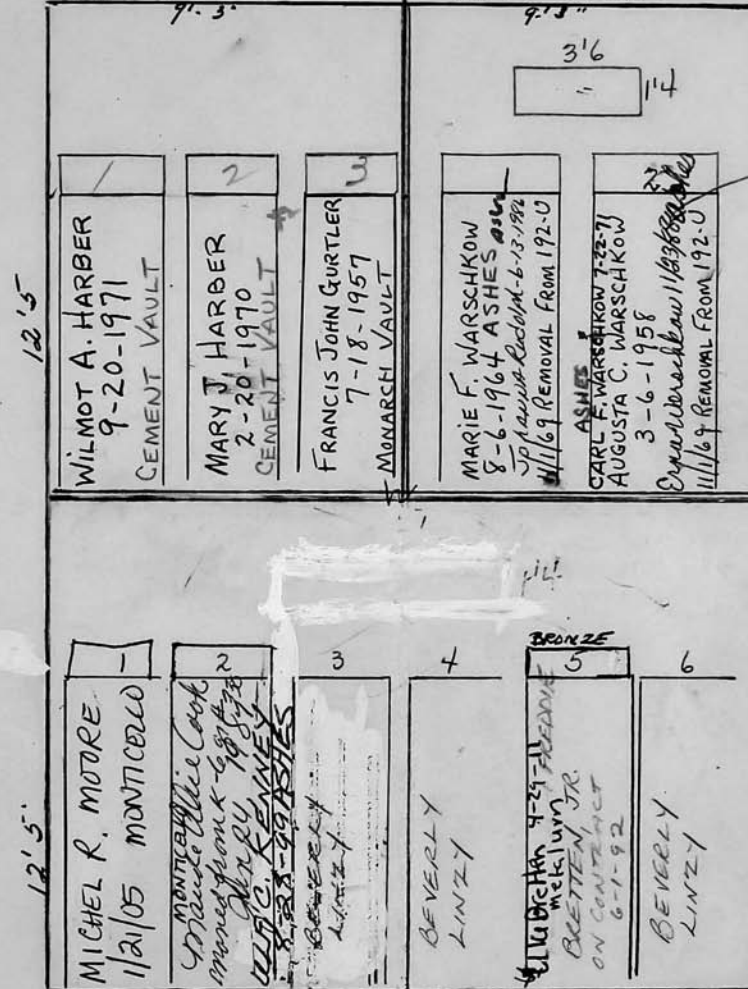 9'-3"
9'-3"
3'6
1'4
12'5
1
WILMOT A. HARBER
9-20-1971
CEMENT VAULT
2
MARY J. HARBER
2-20-1970
CEMENT VAULT
3
FRANCIS JOHN GURTLER
7-18-1957
MONARCH VAULT
1
MARIE F. WARSCHKOW
8-6-1964 ASHES
Rudolph-6-13-1986
11/1/69 REMOVAL FROM 192-U
2
ASHES
CARL F. WARSCHKOW 7-22-71
AUGUSTA C. WARSCHKOW
3-6-1958
11/1/69 REMOVAL FROM 192-U
12'5"
1
MICHEL R. MOORE
1/21/05 MONTICELLO
2
MONTICELLO
Maude Cook
moved from
WM C. KENNEY
8-28-99 ASHES
3
BEVERLY
LINZY
4
BEVERLY
LINZY
BRONZE
5
Bretten 4-29-11
metal urn
FREDDIE
BRETTEN, JR.
ON CONTRACT
6-1-92
6
BEVERLY
LINZY